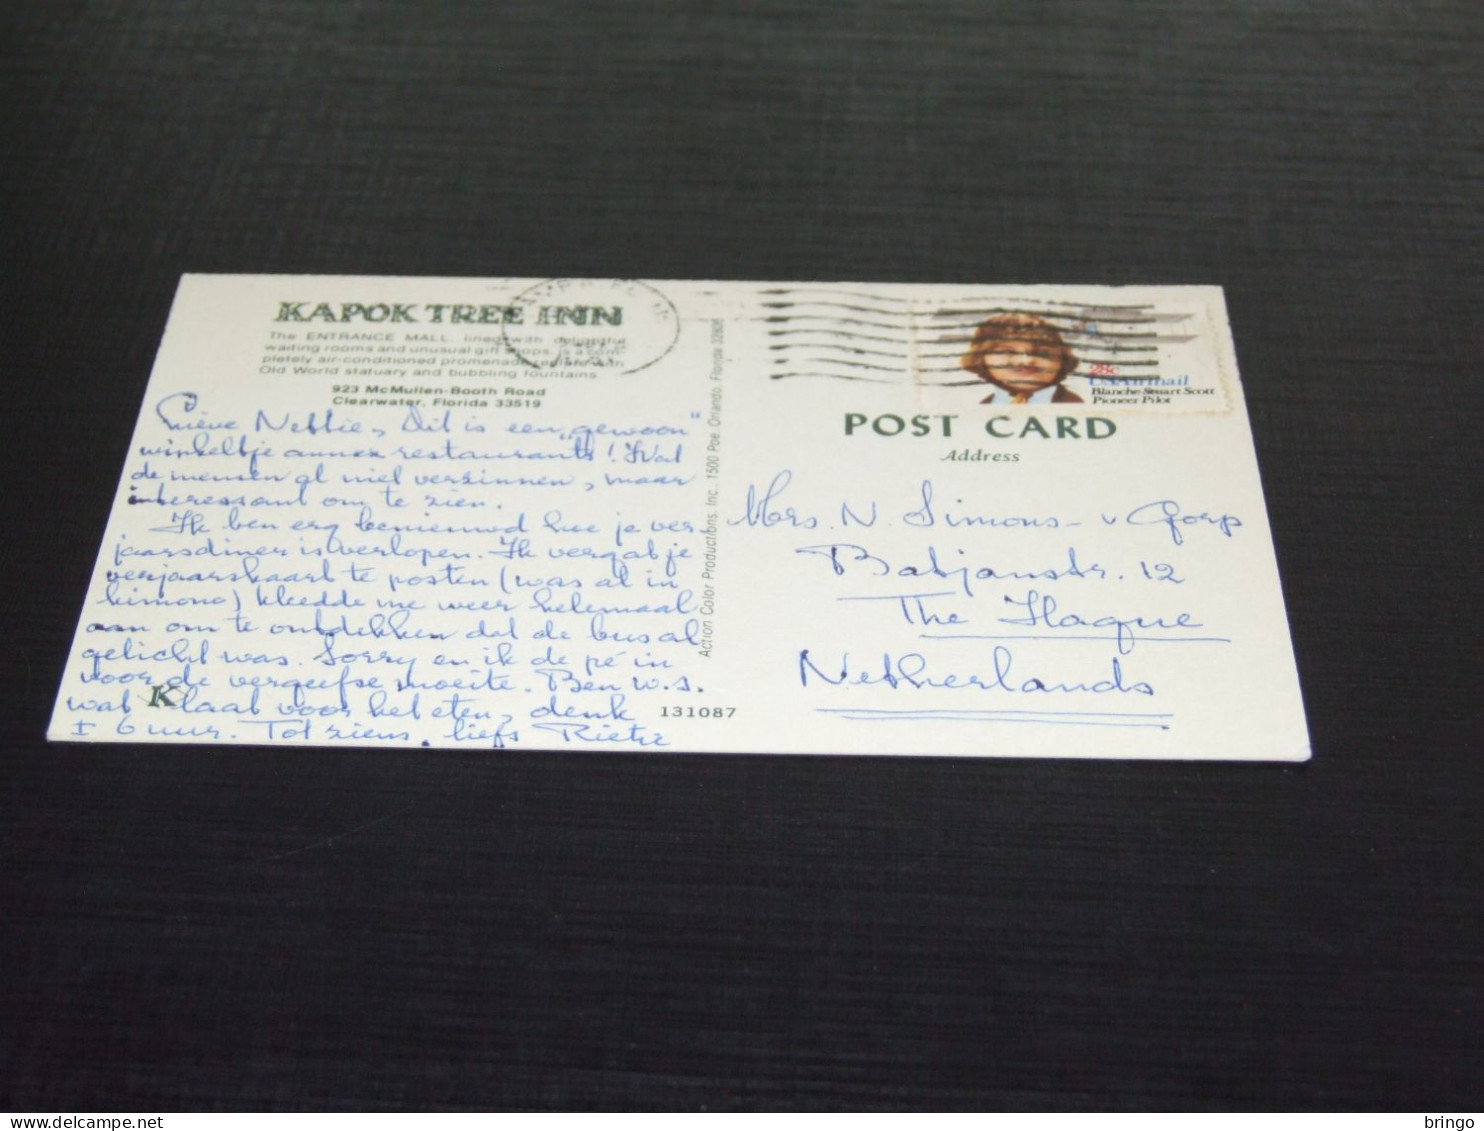 KAPOK TREE INN
The ENTRANCE MALL, lined with delightful
waiting rooms and unusual gift shops, is a com-
pletely air-conditioned promenade replete with
Old World statuary and bubbling fountains
923 McMullen-Booth Road
Clearwater, Florida 33519
Lieve Nettie, Dit is een „gewoon"
winkeltje annex restaurant"! Wat
de mensen al niet verzinnen, maar
interessant om te zien.
Ik ben erg benieuwd hoe je ver-
jaarsdiner is verlopen. Ik vergat je
verjaarskaart te posten (was al in
kimono) kleedde me weer helemaal
aan om te ontdekken dat de bus al
gelicht was. Sorry en ik de pé in
voor de vergeefse moeite. Ben w.s.
wat laat voor het eten, denk
± 6 uur. Tot ziens, liefs Rietje
K
131087
Action Color Productions, Inc., 1500 Poe, Orlando, Florida 32806
28c
USAirmail
Blanche Stuart Scott
Pioneer Pilot
POST CARD
Address
Mrs. N Simons-v Gorp
Batjanstr. 12
The Hague
Netherlands
delcampe.net
bringo